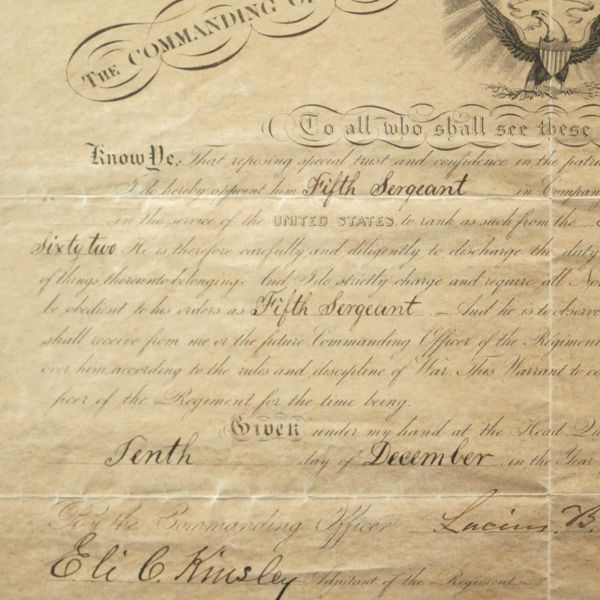 THE COMMANDING OF
To all who shall see these
Know Ye, That reposing special trust and confidence in the patri
I do hereby appoint him Fifth Sergeant in Company
in the service of the UNITED STATES, to rank as such from the
Sixty two He is therefore carefully and diligently to discharge the duty
of things thereunto belonging. And, I do strictly charge and require all No
be obedient to his orders as Fifth Sergeant. — And he is to observe
shall receive from me or the future Commanding Officer of the Regiment
over him according to the rules and discipline of War. This Warrant to co
ficer of the Regiment for the time being.
Given under my hand at the Head Qu
Tenth day of December, in the Year
By the Commanding Officer Lucius. B.
Eli C. Kinsley Adjutant of the Regiment